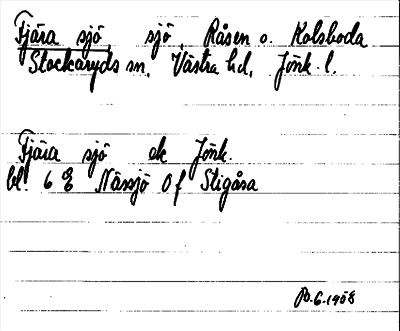 Fjära sjö, sjö, Råsen o. Kolsboda
Stockaryds sn, Västra hd, Jönk. l.
Fjära sjö ek Jönk.
bl. 6 E Nässjö 0 f Stigåsa
6.1908